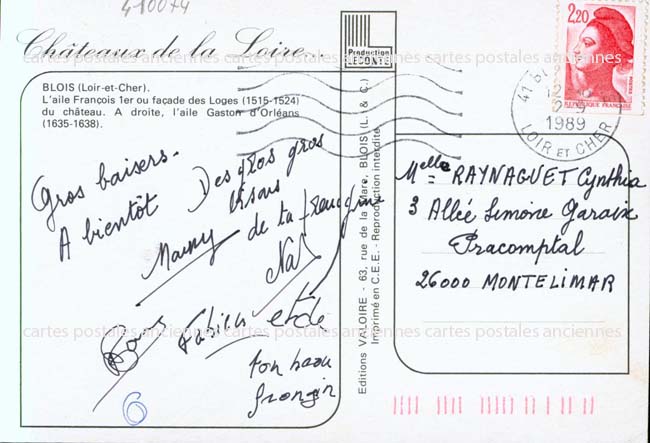 410074
Châteaux de la Loire...
Production
LECONTE
BLOIS (Loir-et-Cher).
L'aile François 1er ou façade des Loges (1515-1524)
du château. A droite, l'aile Gaston d'Orléans
(1635-1638).
Gros baisers.
A bientôt
Des gros gros
bisous
Mamy
de ta
Fabien et de
ton
6
Editions VALOIRE - 63, rue de la Gare, BLOIS (L. & C.)
Imprimé en C.E.E. - Reproduction interdite
2,20
REPUBLIQUE FRANÇAISE
POSTES
41 BL
1989
LOIR ET CHER
Melle RAYNAGUET Cynthia
3 Allée Simone Garaix
Pracomptal
26000 MONTELIMAR
cartes postales anciennes cartes postales anciennes cartes postales anciennes
cartes postales anciennes cartes postales anciennes cartes postales anciennes